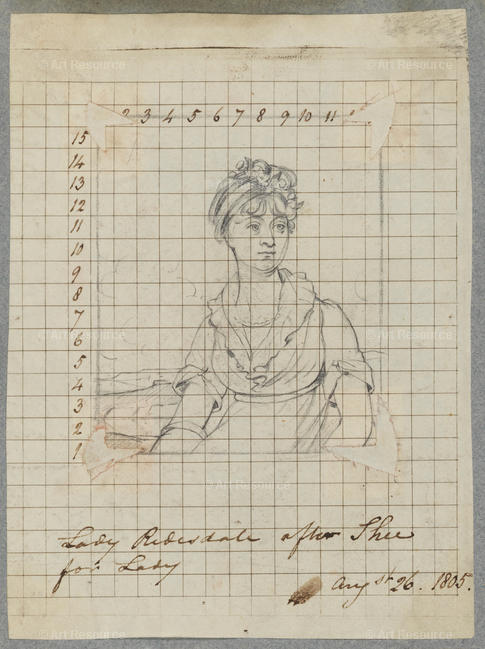 2 3 4 5 6 7 8 9 10 11
15
14
13
12
11
10
9
8
7
6
5
4
3
2
1
Lady Ridesdale after Shee
for Lady
Augst 26. 1805.
© Art Resource
© Art Resource
© Art Resource
© Art Resource
© Art Resource
© Art Resource
© Art Resource
© Art Resource